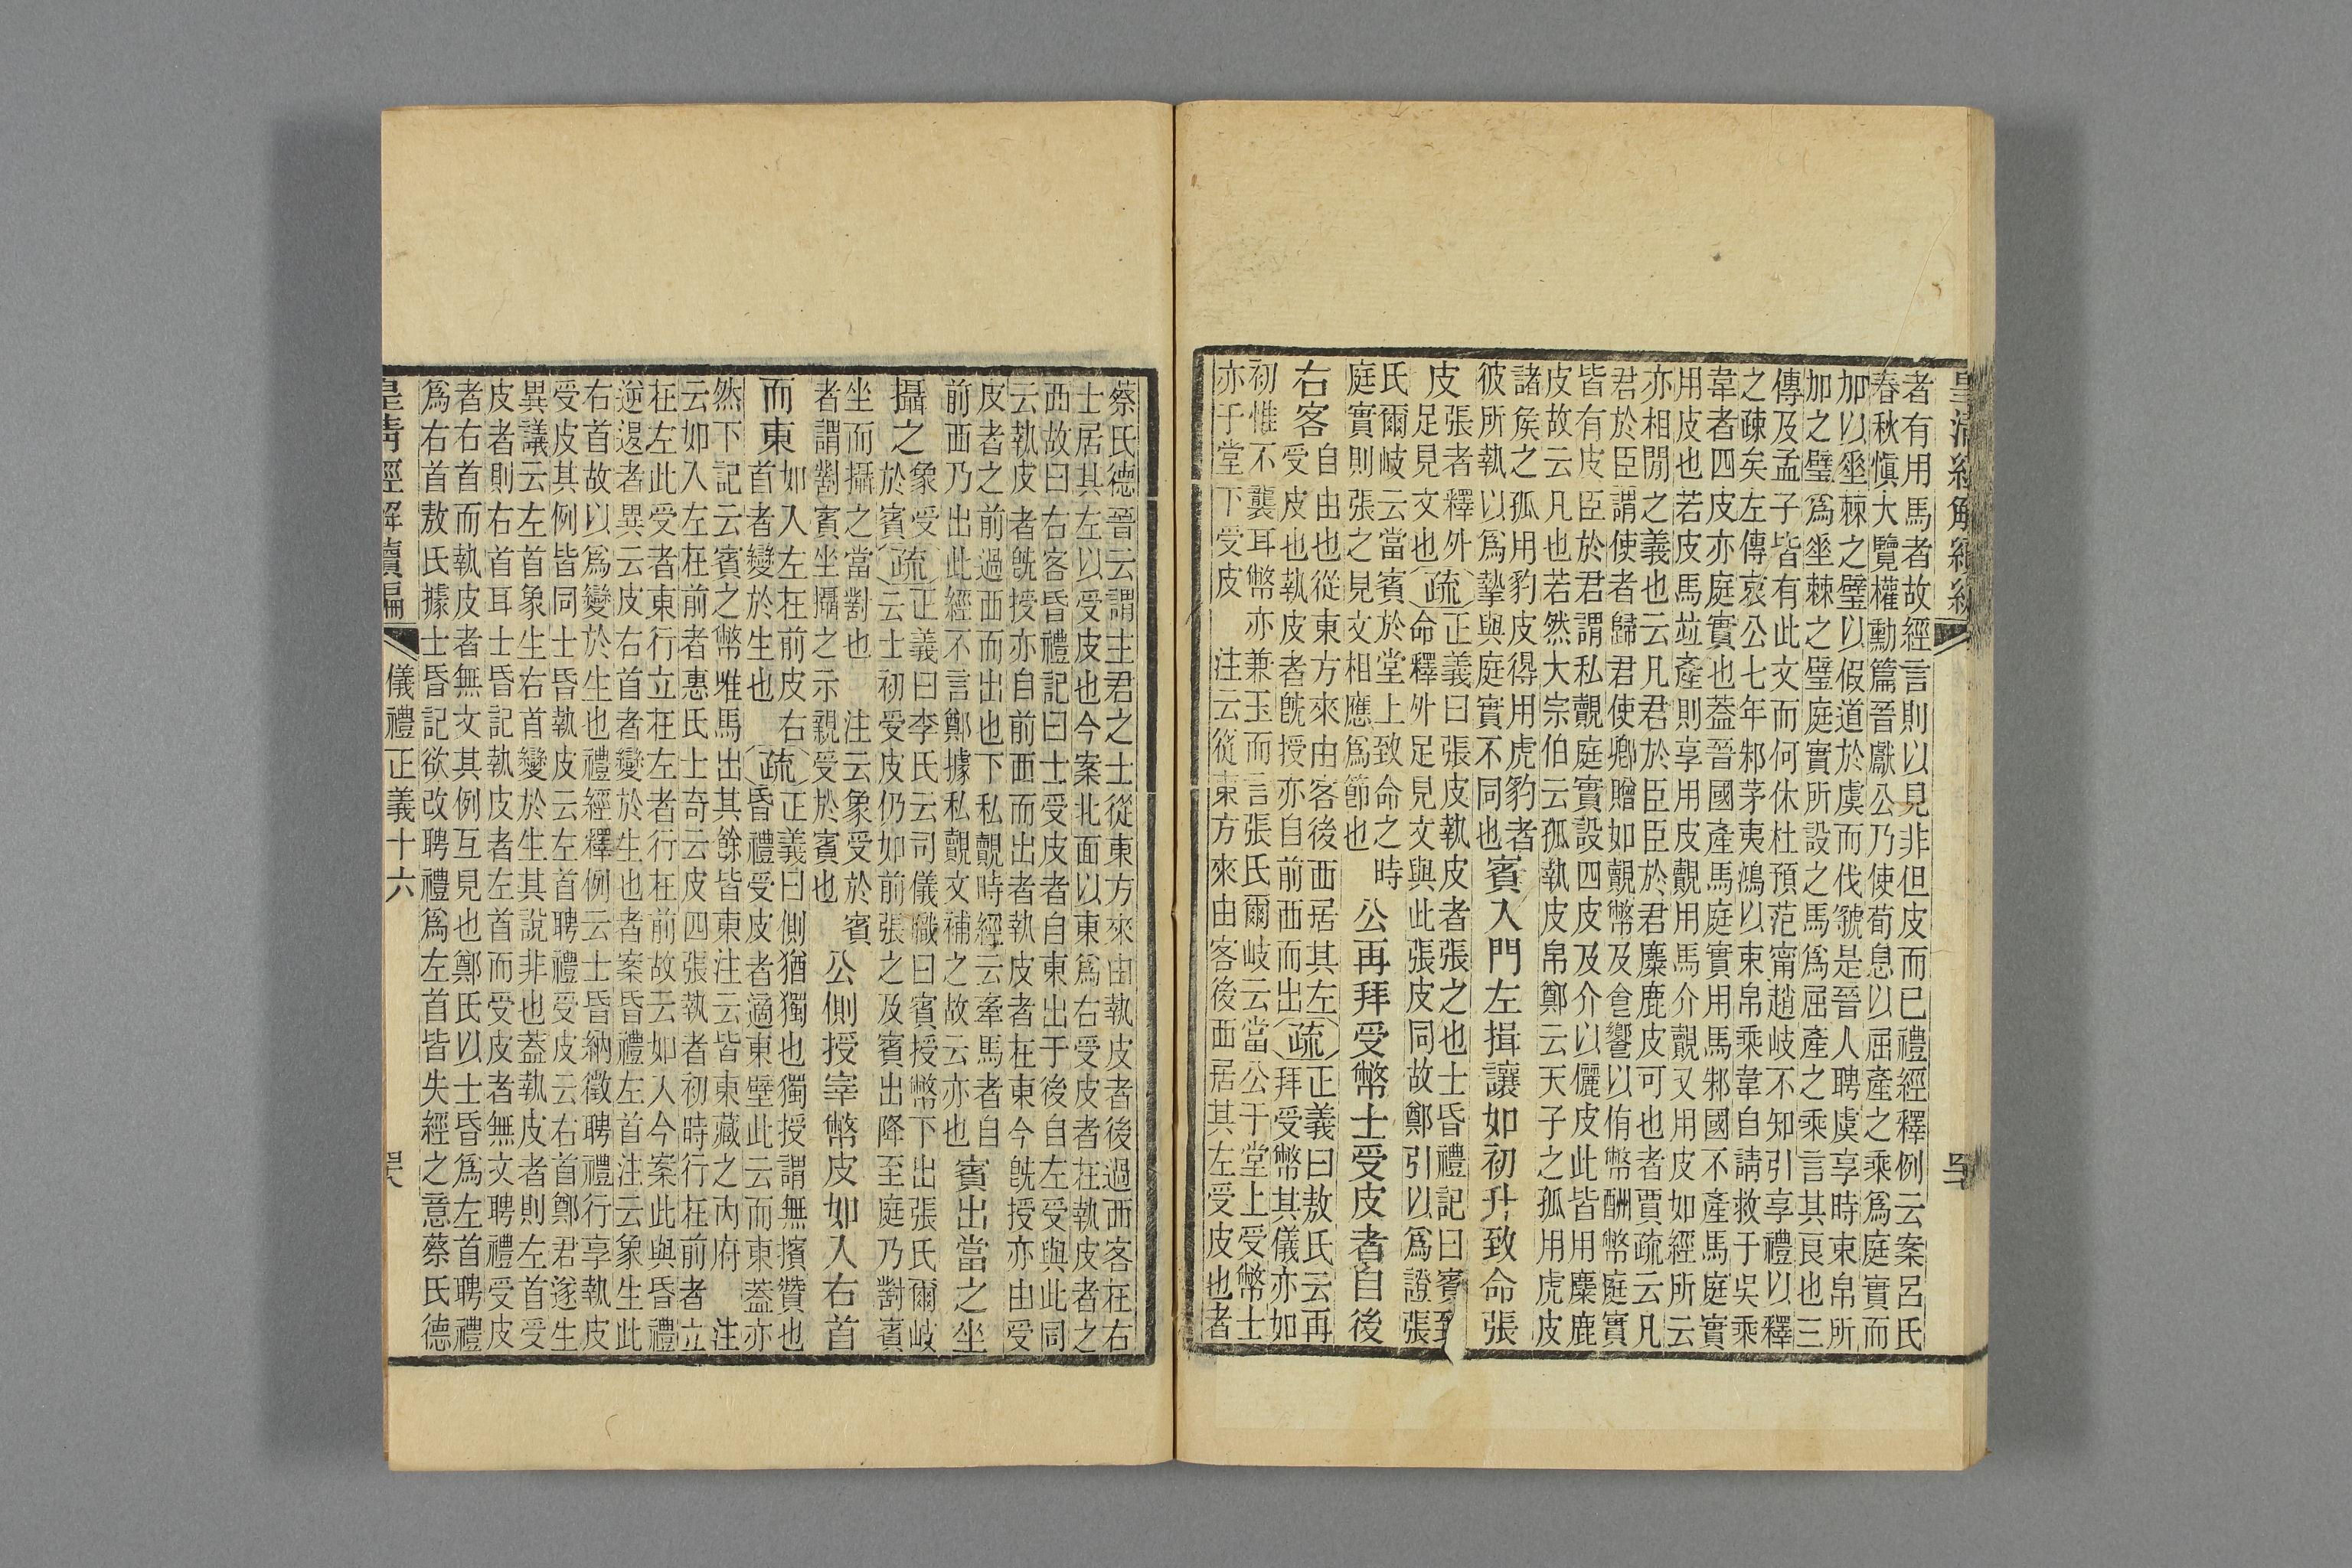 皇清經解續編
者有用馬者故經言則以見非但皮而已禮經釋例云案呂氏
春秋愼大覽權勳篇晉獻公乃使荀息以屈產之乘爲庭實而
加以垂棘之璧以假道於虞而伐虢是晉人聘虞享時束帛所
加之璧爲垂棘之璧庭實所設之馬爲屈產之乘言其良也三
傳及孟子皆有此文而何休杜預范甯趙岐不知引享禮以釋
之疎矣左傳哀公七年邾茅夷鴻以束帛乘韋自請救于吳乘
韋者四皮亦庭實也蓋晉國產馬庭實用馬邾國不產馬庭實
用皮也若皮馬竝產則享用皮覿用馬介覿又用皮如經所云
亦相閒之義也云凡君於臣臣於君麋鹿皮可也者賈疏云凡
君於臣謂使者歸君使卿贈如覿幣及食饗以侑幣酬幣庭實
皆有皮臣於君謂私覿庭實設四皮及介以儷皮此皆用麋鹿
皮故云凡也若然大宗伯云孤執皮帛鄭云天子之孤用虎皮
諸矦之孤用豹皮得用虎豹者
彼所執以爲摯與庭實不同也
賓入門左揖讓如初升致命張
皮
張者釋外
足見文也
疏
正義曰張皮執皮者張之也士昏禮記曰賓致
命釋外足見文與此張皮同故鄭引以爲證張
氏爾岐云當賓於堂上致命之時
庭實則張之見文相應爲節也
公再拜受幣士受皮者自後
右客
自由也從東方來由客後西居其左
受皮也執皮者旣授亦自前西而出
疏
正義曰敖氏云再
拜受幣其儀亦如
初惟不襲耳幣亦兼玉而言張氏爾岐云當公于堂上受幣士
亦于堂下受皮 注云從東方來由客後西居其左受皮也者
蔡氏德晉云謂主君之士從東方來由執皮者後過西客在右
士居其左以受皮也今案北面以東爲右受皮者在執皮者之
西故曰右客昏禮記曰士受皮者自東出于後自左受與此同
云執皮者旣授亦自前西而出者執皮者在東今旣授亦由受
皮者之前過西而出也下私覿時經云牽馬者自
前西乃出此經不言鄭據私覿文補之故云亦也
賓出當之坐
攝之
象受
於賓
疏
正義曰李氏云司儀職曰賓授幣下出張氏爾岐
云士初受皮仍如前張之及賓出降至庭乃對賓
坐而攝之當對也 注云象受於賓
者謂對賓坐攝之示親受於賓也
公側授宰幣皮如入右首
而東
如入左在前皮右
首者變於生也
疏
正義曰側猶獨也獨授謂無擯贊也
昏禮受皮者適東壁此云而東蓋亦
然下記云賓之幣唯馬出其餘皆東注云皆東藏之內府 注
云如入左在前者惠氏士奇云皮四張執者初時行在前者立
在左此受者東行立在左者行在前故云如入今案此與昏禮
逆退者異云皮右首者變於生也者案昏禮左首注云象生此
右首故以爲變於生也禮經釋例云士昏納徵聘禮行享執皮
受皮其例皆同士昏執皮云左首聘禮受皮云右首鄭君遂生
異議云左首象生右首變於生其說非也蓋執皮者則左首受
皮者則右首耳士昏記執皮者左首而受皮者無文聘禮受皮
者右首而執皮者無文其例互見也鄭氏以士昏爲左首聘禮
爲右首敖氏據士昏記欲改聘禮爲左首皆失經之意蔡氏德
皇淸經解續編
儀禮正義十六